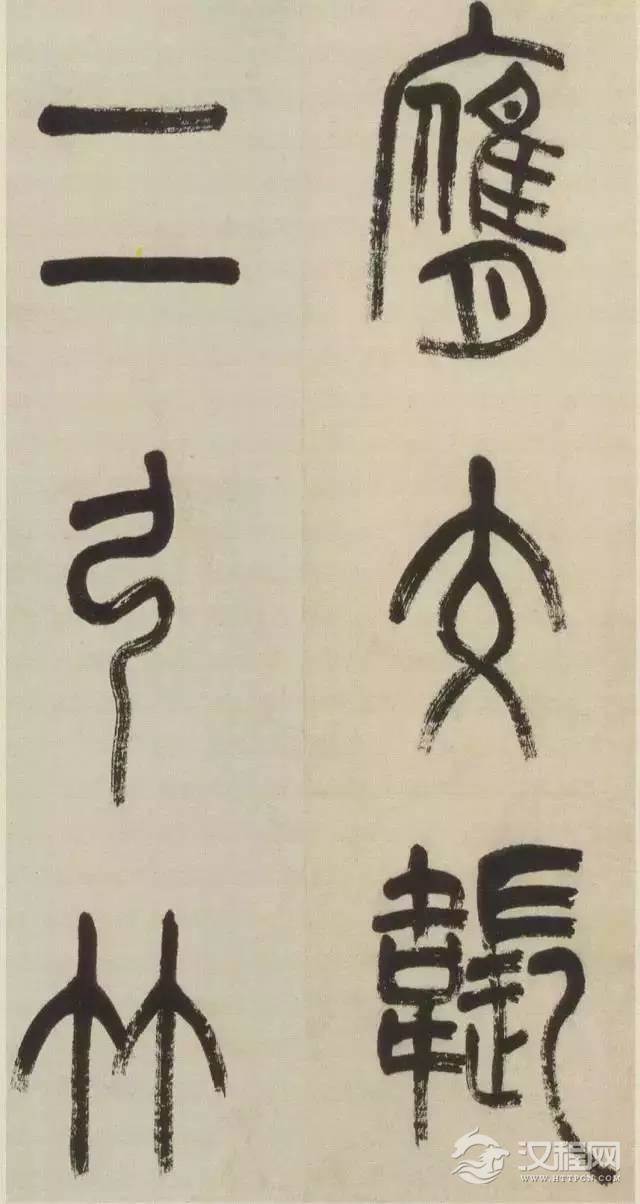 膺交韔
二弓竹
汉程网
HTTPCN.COM